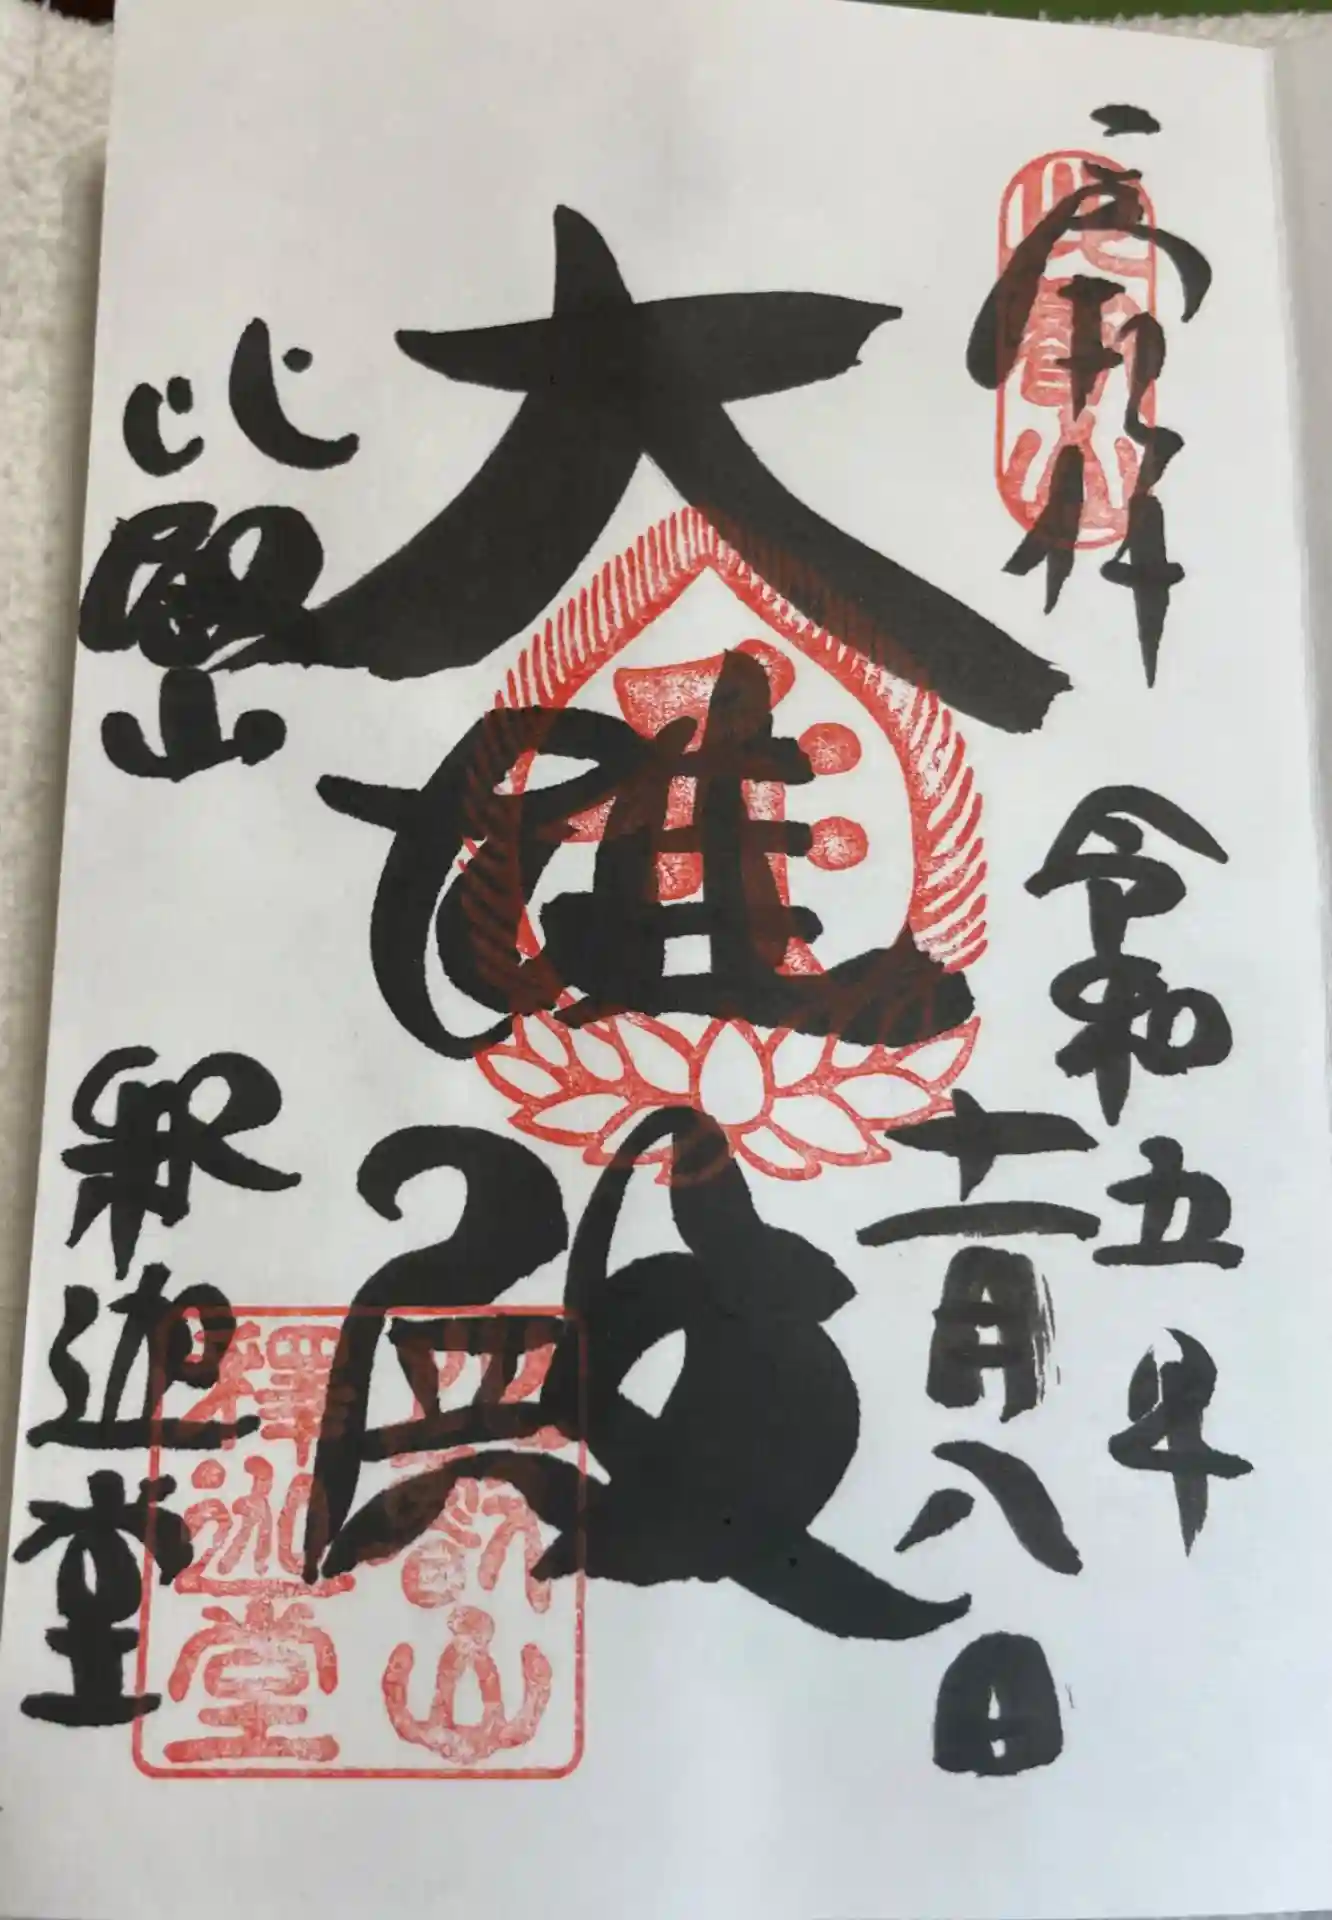 奉拝
令和五年
十一月八日
大雄殿
比叡山
釈迦堂
比叡山
釋迦堂